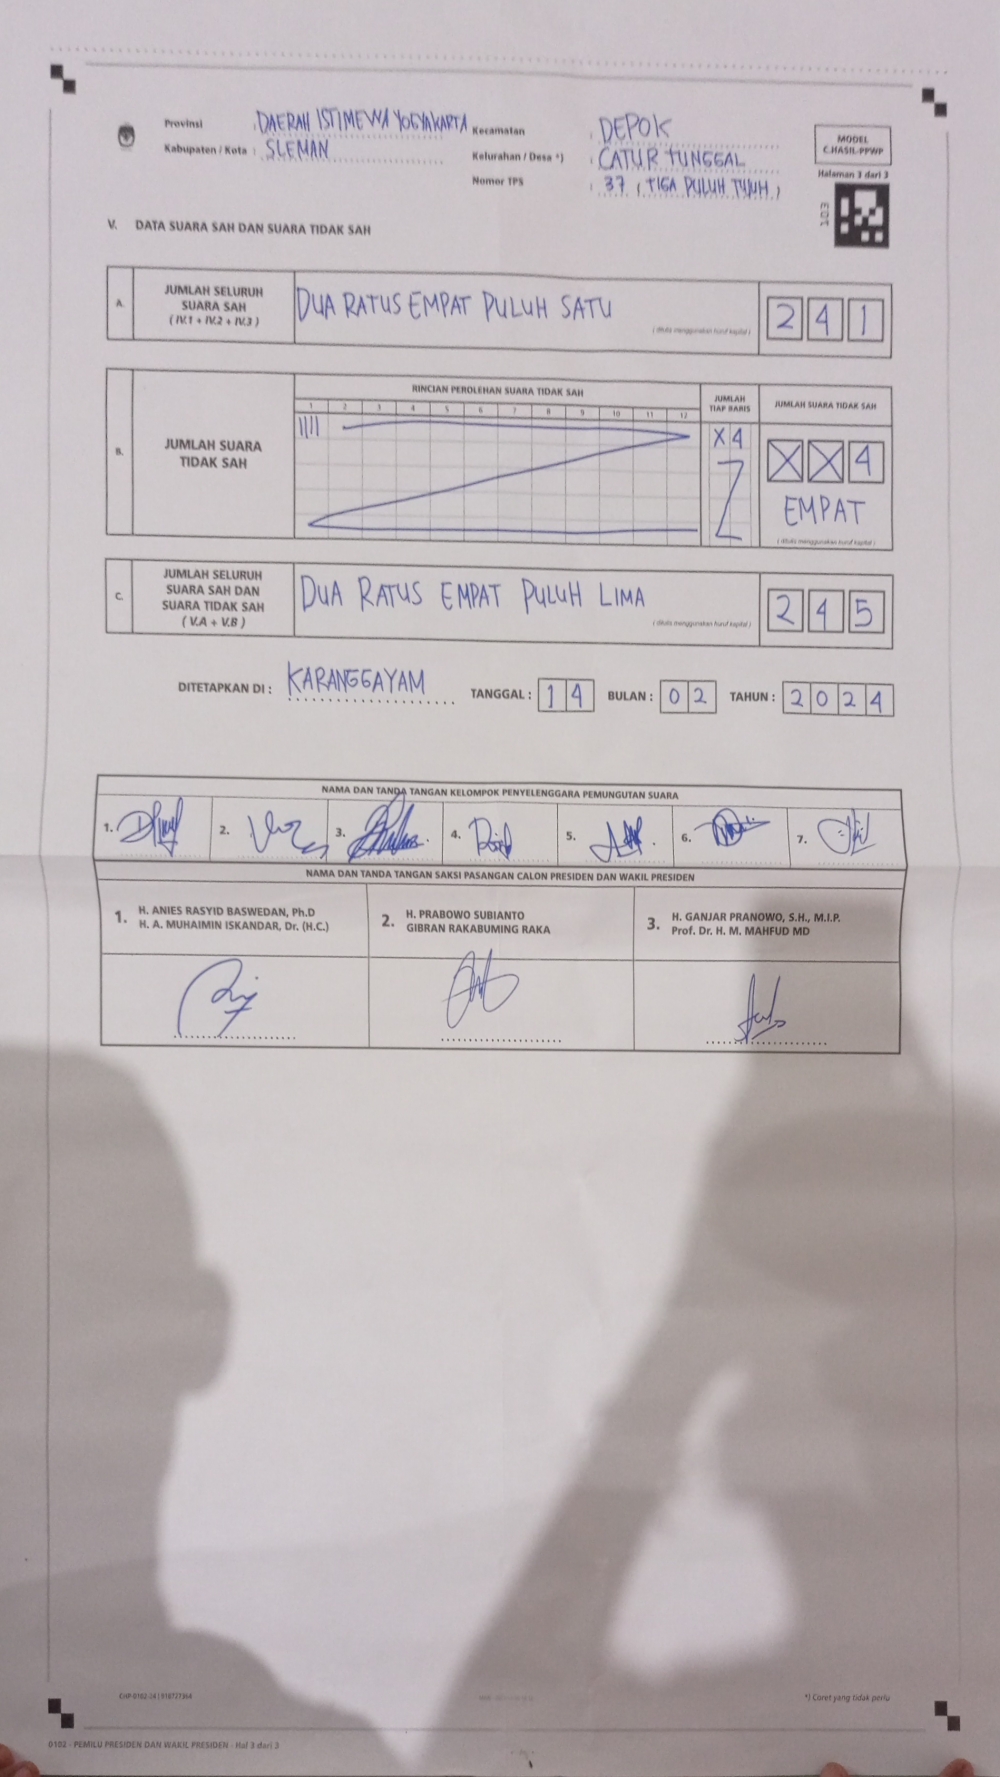 Provinsi : DAERAH ISTIMEWA YOGYAKARTA
Kabupaten / Kota : SLEMAN
Kecamatan : DEPOK
Kelurahan / Desa *) : CATUR TUNGGAL
Nomor TPS : 37 ( TIGA PULUH TUJUH )
MODEL
C.HASIL-PPWP
Halaman 3 dari 3
V. DATA SUARA SAH DAN SUARA TIDAK SAH
A. JUMLAH SELURUH SUARA SAH ( IV.1 + IV.2 + IV.3 ) DUA RATUS EMPAT PULUH SATU 2 4 1
( ditulis menggunakan huruf kapital )
RINCIAN PEROLEHAN SUARA TIDAK SAH
JUMLAH TIAP BARIS
JUMLAH SUARA TIDAK SAH
1 2 3 4 5 6 7 8 9 10 11 12
B. JUMLAH SUARA TIDAK SAH
X 4
X X 4
EMPAT
( ditulis menggunakan huruf kapital )
C. JUMLAH SELURUH SUARA SAH DAN SUARA TIDAK SAH ( V.A + V.B ) DUA RATUS EMPAT PULUH LIMA 2 4 5
( ditulis menggunakan huruf kapital )
DITETAPKAN DI : KARANGGAYAM TANGGAL : 1 4 BULAN : 0 2 TAHUN : 2 0 2 4
NAMA DAN TANDA TANGAN KELOMPOK PENYELENGGARA PEMUNGUTAN SUARA
1. 2. 3. 4. 5. 6. 7.
NAMA DAN TANDA TANGAN SAKSI PASANGAN CALON PRESIDEN DAN WAKIL PRESIDEN
1. H. ANIES RASYID BASWEDAN, Ph.D
H. A. MUHAIMIN ISKANDAR, Dr. (H.C.)
2. H. PRABOWO SUBIANTO
GIBRAN RAKABUMING RAKA
3. H. GANJAR PRANOWO, S.H., M.I.P.
Prof. Dr. H. M. MAHFUD MD
*) Coret yang tidak perlu
0102 - PEMILU PRESIDEN DAN WAKIL PRESIDEN - Hal 3 dari 3